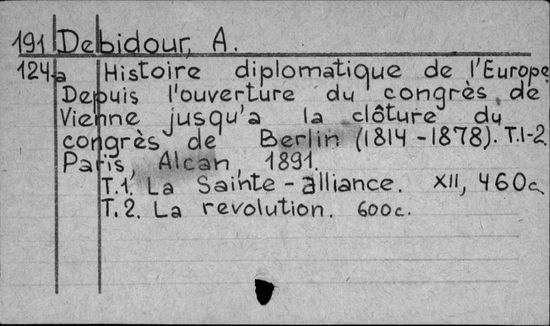 191 Debidour, A.
124a Histoire diplomatique de l'Europe
Depuis l'ouverture du congrès de
Vienne jusqu'a la clôture du
congrès de Berlin (1814-1878). T.1-2.
Paris, Alcan, 1891.
T.1. La Sainte-alliance. XII, 460c.
T.2. La revolution. 600c.